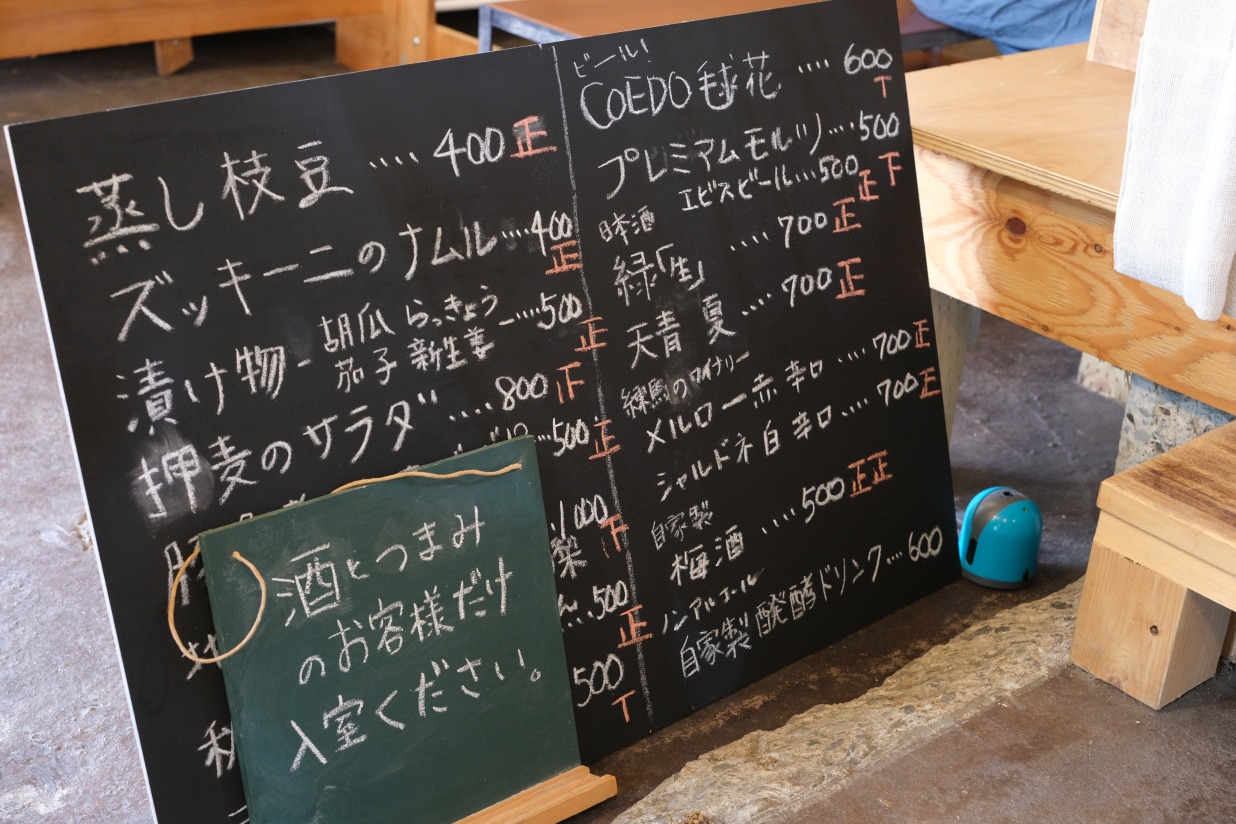 蒸し枝豆 .... 400 正
ズッキーニのナムル....400
正
漬け物 - 胡瓜 らっきょう
茄子 新生姜 ....500
正
押麦のサラダ....800
...500 正
1000
下
500
正
500
T
酒とつまみ
のお客様だけ
入室ください。
ビール!
COEDO 毬花 .... 600
T
プレミアムモルツ...500
下
エビスビール...500 正
日本酒
緑「生」 .... 700 正
天青 夏 .... 700 正
練馬のワイナリー
メルロー赤 辛口 .... 700 正
シャルドネ白 辛口 .... 700 正
自家製
梅酒 .... 500 正正
ノンアルコール
自家製 醗酵ドリンク...600